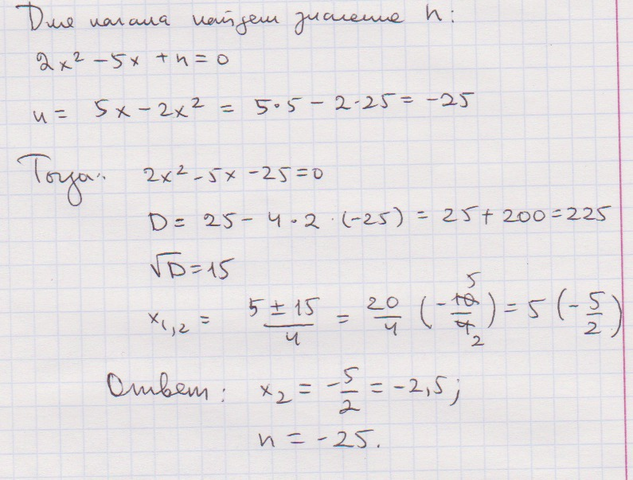 Для начала найдем значение n:
2x² - 5x + n = 0
n = 5x - 2x² = 5·5 - 2·25 = -25
Тогда: 2x² - 5x - 25 = 0
D = 25 - 4·2·(-25) = 25 + 200 = 225
√D = 15
x₁,₂ = (5 ± 15)/4 = 20/4 (-10/4 5/2) = 5 (-5/2)
Ответ: x₂ = -5/2 = -2,5;
n = -25.